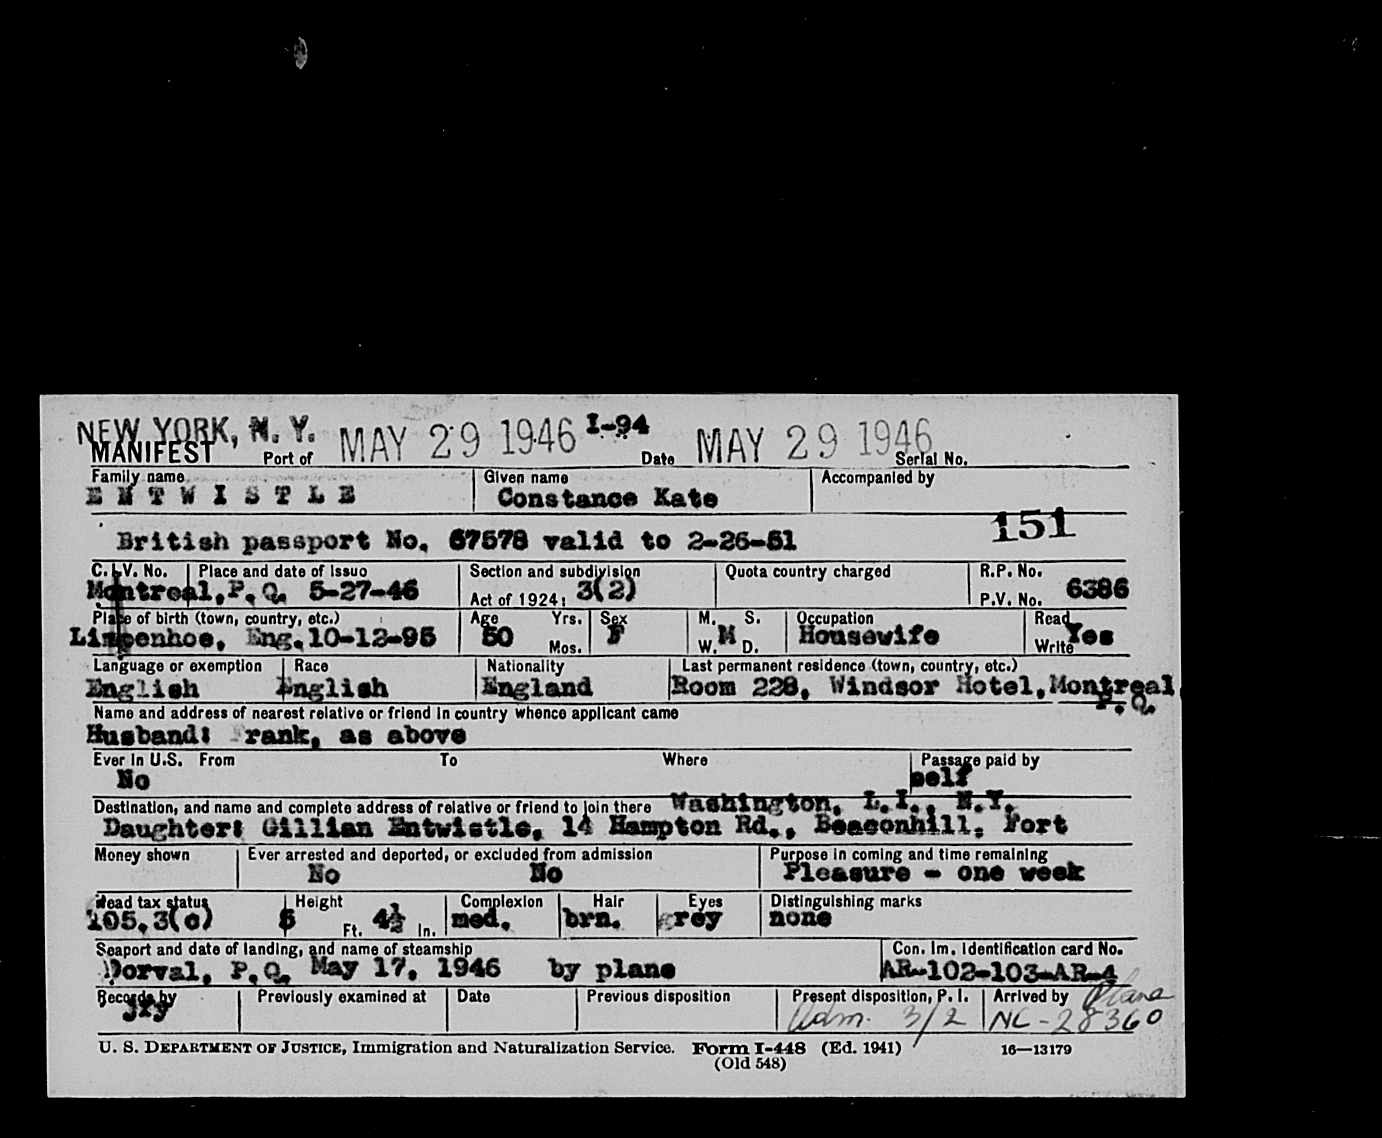 NEW YORK, N. Y. MAY 29 1946 I-94 MAY 29 1946
MANIFEST Port of Date Serial No.
Family name Given name Accompanied by
ENTWISTLE Constance Kate
British passport No. 67578 valid to 2-26-51 151
C.I.V. No. Place and date of issue Section and subdivision Quota country charged R.P. No.
Montreal, P.Q. 5-27-46 Act of 1924: 3(2) P.V. No. 6386
Place of birth (town, country, etc.) Age Yrs. Sex M. S. Occupation Read
Limpenhoe, Eng. 10-12-95 50 Mos. F W. M D. Housewife Write Yes
Language or exemption Race Nationality Last permanent residence (town, country, etc.)
English English England Room 228, Windsor Hotel, Montreal
P.Q.
Name and address of nearest relative or friend in country whence applicant came
Husband: Frank, as above
Ever in U.S. From To Where Passage paid by
No self
Destination, and name and complete address of relative or friend to join there Washington, L.I., N.Y.
Daughter: Gillian Entwistle, 14 Hampton Rd., Beaconhill, Port
Money shown Ever arrested and deported, or excluded from admission Purpose in coming and time remaining
No No Pleasure - one week
Head tax status Height Complexion Hair Eyes Distinguishing marks
105.3(c) 5 Ft. 4½ In. med. brn. grey none
Seaport and date of landing, and name of steamship Con. Im. Identification card No.
Dorval, P.Q. May 17, 1946 by plane AR-102-103-AR-4
Records by Previously examined at Date Previous disposition Present disposition, P. I. Arrived by Plane
jry Adm. 3/2 NC-28360
U. S. DEPARTMENT OF JUSTICE, Immigration and Naturalization Service. Form I-448 (Ed. 1941) 16—13179
(Old 548)